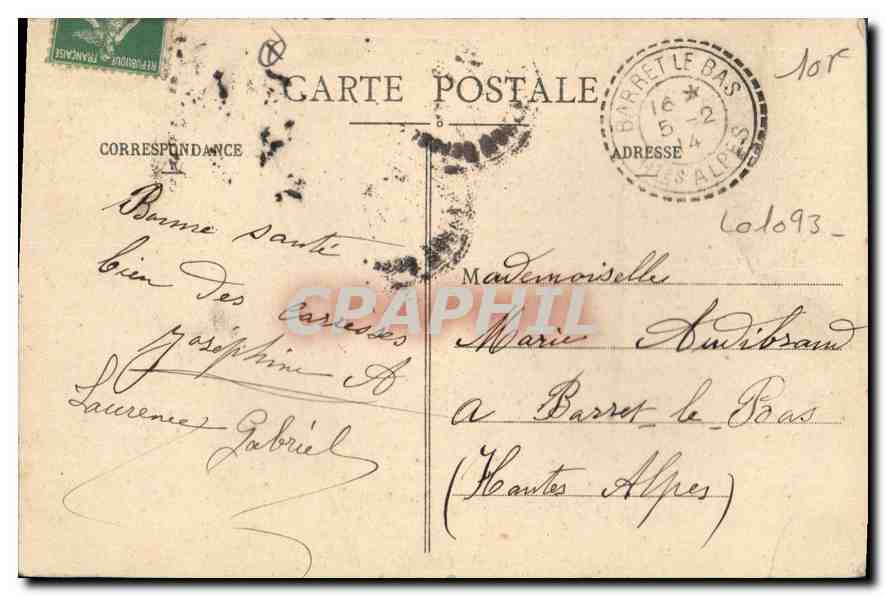 REPUBLIQUE FRANÇAISE
CARTE POSTALE
10F
BARRET LE BAS
16 * 2
5 14
HTES ALPES
CORRESPONDANCE
ADRESSE
601093
Bonne santé
bien des caresses
Joséphine A
Laurence
Gabriel
Mademoiselle
Marie Audibrand
a Barret-le-Bas
(Hautes Alpes)
CPAPHIL